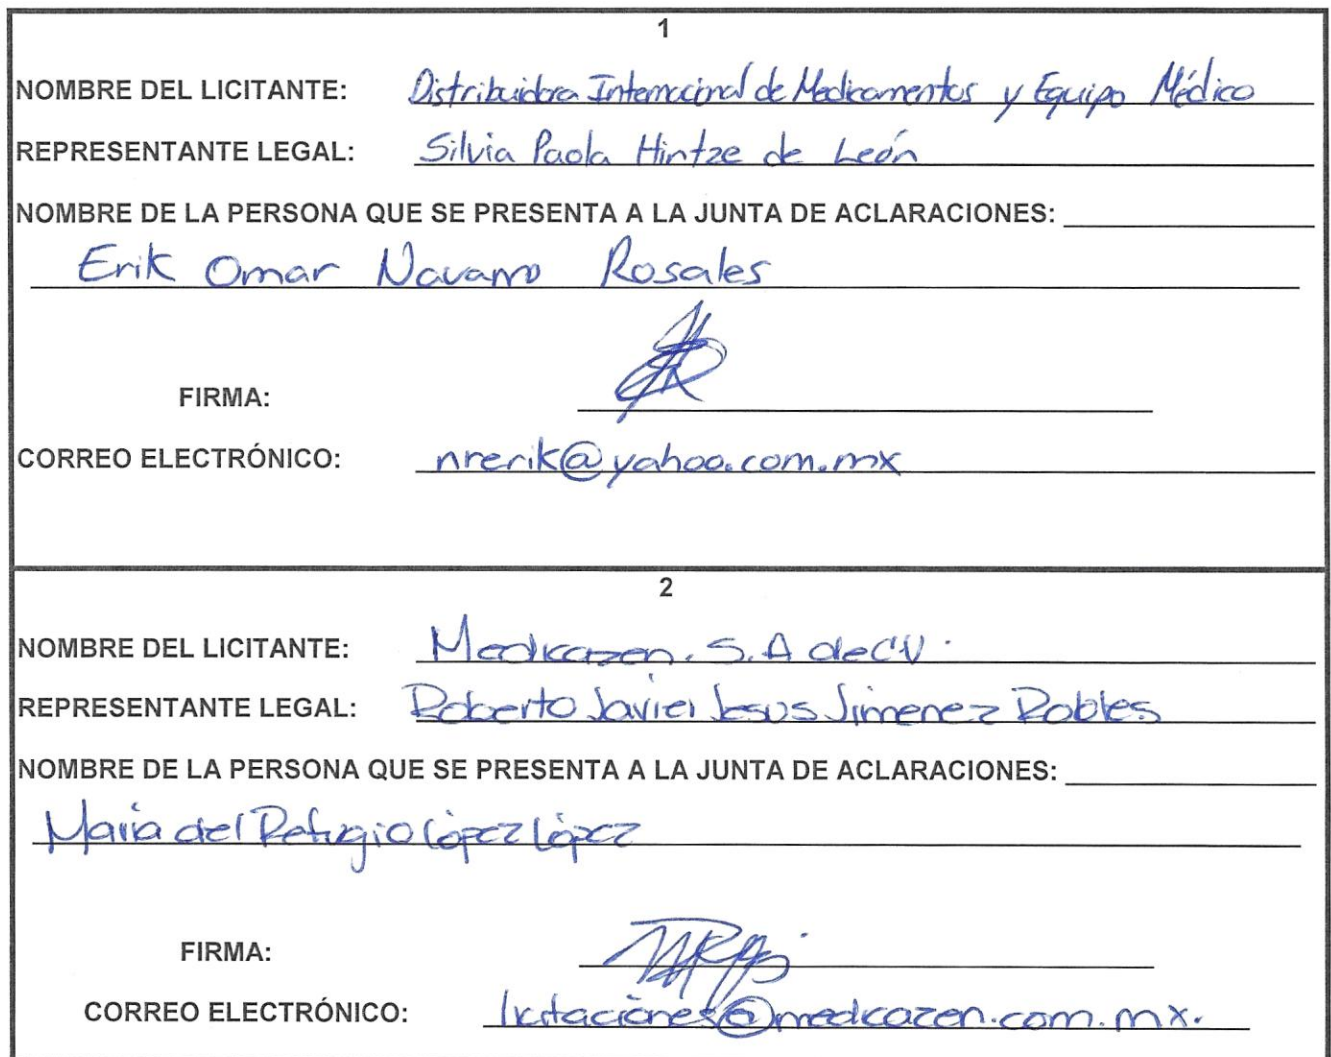 1
NOMBRE DEL LICITANTE: Distribuidora Internacional de Medicamentos y Equipo Médico
REPRESENTANTE LEGAL: Silvia Paola Hintze de León
NOMBRE DE LA PERSONA QUE SE PRESENTA A LA JUNTA DE ACLARACIONES:
Erik Omar Navarro Rosales
FIRMA:
CORREO ELECTRÓNICO: nrerik@yahoo.com.mx
2
NOMBRE DEL LICITANTE: Medicazen. S.A de CV.
REPRESENTANTE LEGAL: Roberto Javier Jesus Jimenez Robles
NOMBRE DE LA PERSONA QUE SE PRESENTA A LA JUNTA DE ACLARACIONES:
María del Refugio López López
FIRMA:
CORREO ELECTRÓNICO: licitaciones@medicazen.com.mx.